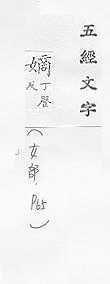 五經文字
嫡 丁歷反
(女部, P65)